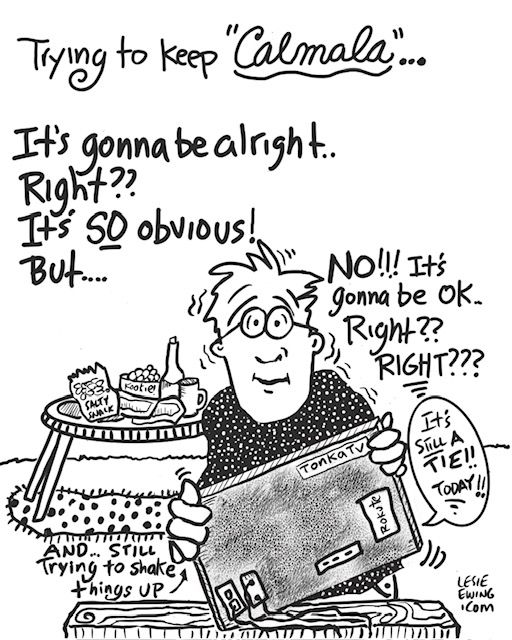 Trying to keep "Calmala"...
It's gonna be alright..
Right??
It's SO obvious!
But....
NO!!! It's
gonna be OK..
Right??
RIGHT???
Kootie!
SALTY
SNACK
TonkaTV
It's
STILL A
TIE!!
TODAY!!
Rokute
AND... STILL
Trying to shake
things UP
LESIE
EWING
.COM